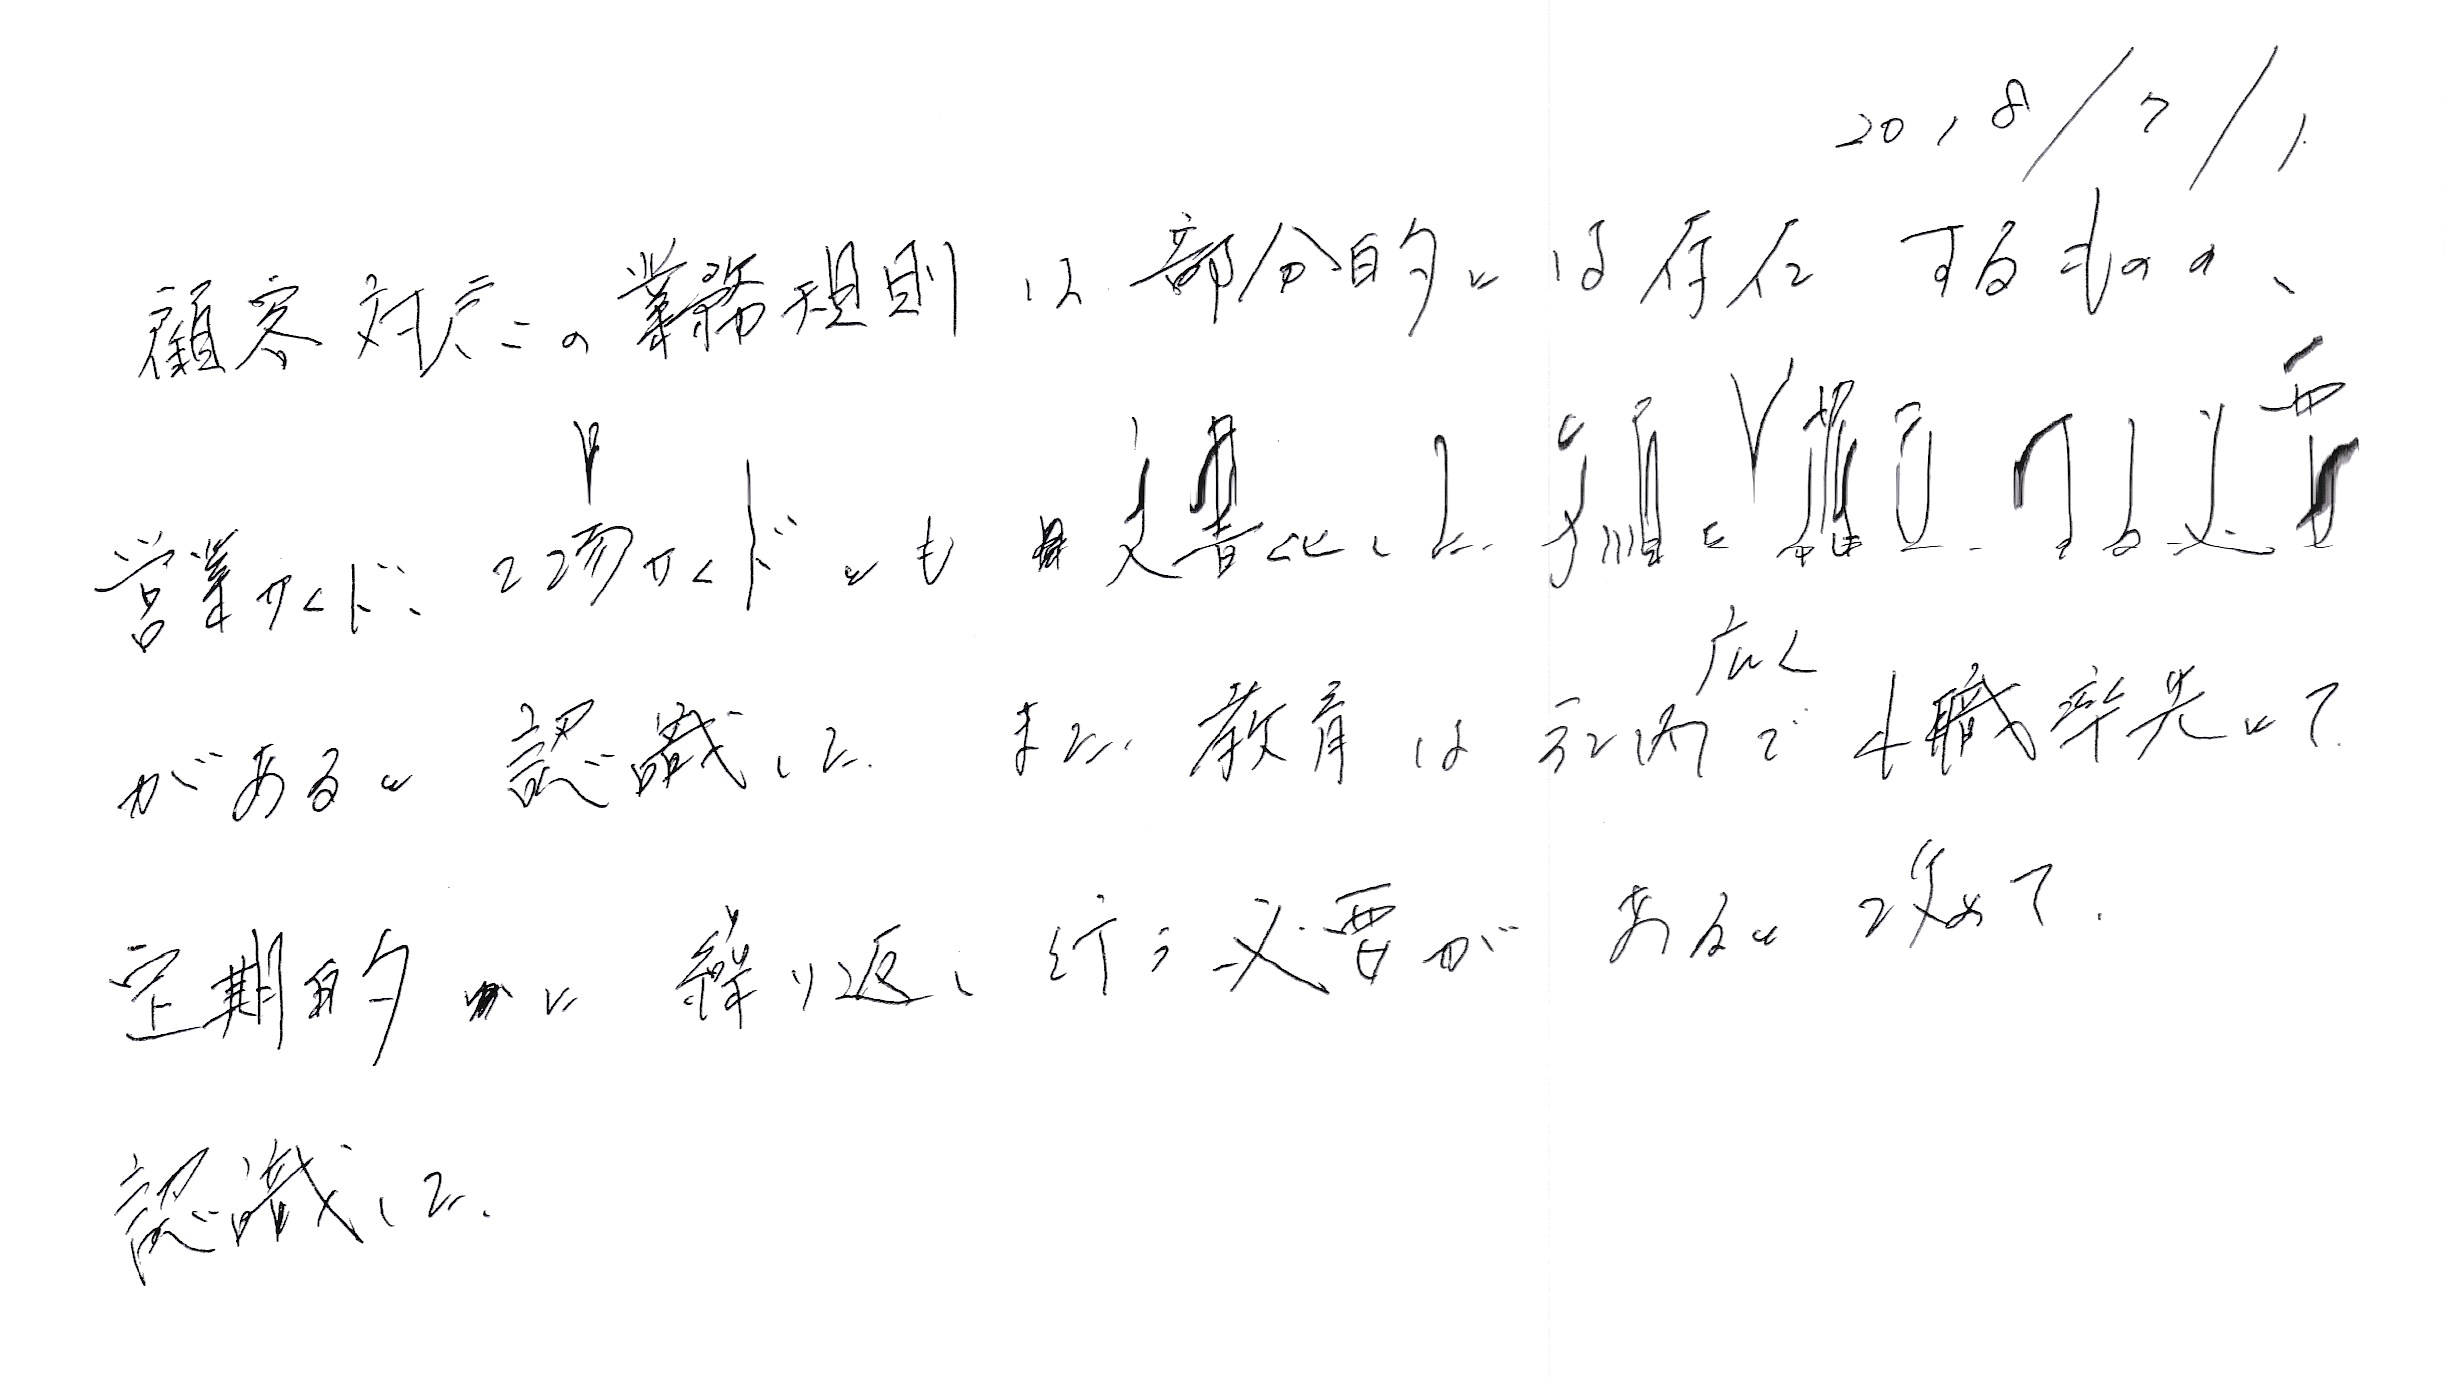 2018/7/1
顧客対応の業務規則は部分的には存在するものの、
営業サイド、工場サイドとも文書化した手順を確立する必要
があると認識した。また、教育は社内で広く 上職率先して
定期的に繰り返し行う必要があると改めて
認識した。